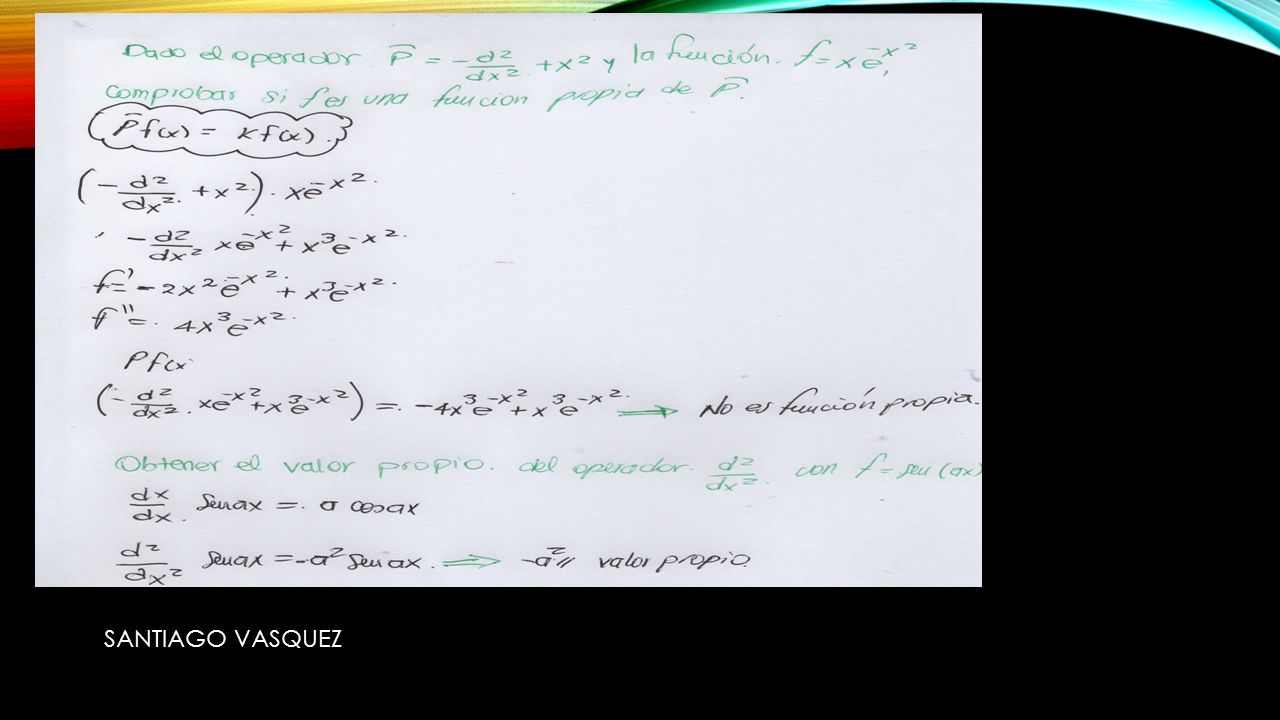 Dado el operador P̂ = -d²/dx² + x² y la función. f = x e^-x²,
Comprobar si f es una funcion propia de P̂.
P̂f(x) = kf(x).
(-d²/dx² + x²) · xe^-x².
-d²/dx² xe^-x² + x³e^-x².
f' = -2x²e^-x² + x³e^-x².
f'' = 4x³e^-x².
Pf(x
(-d²/dx² · xe^-x² + x³e^-x²) = -4x³e^-x² + x³e^-x². → No es función propia.
Obtener el valor propio. del operador. d²/dx². con f = sen(ax)
dx/dx. Senax = a cosax
d²/dx² Senax = -a² Senax. ⇒ -a² // valor propio.
SANTIAGO VASQUEZ